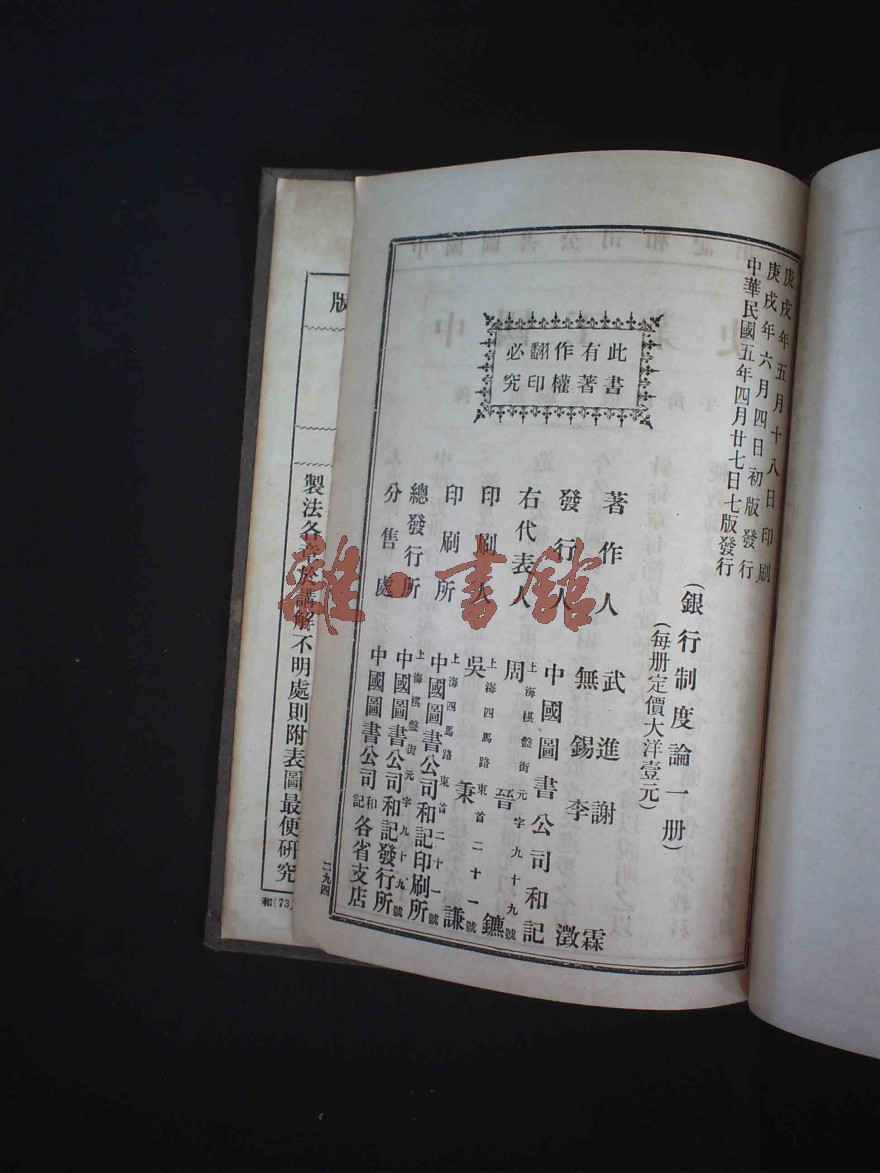 庚戌年五月十八日印刷
庚戌年六月四日初版發行
中華民國五年四月廿七日七版發行
此書
有著
作權
翻印
必究
(銀行制度論一册)
(每册定價大洋壹元)
著作人 武進謝霖
無錫李澂
發行人 中國圖書公司和記
上海棋盤街元字九十九號
右代表人 周晉鑣
上海四馬路東首二十一號
印刷人 吳秉謙
上海四馬路東首二十一號
印刷所 中國圖書公司和記印刷所
上海棋盤街元字九十九號
總發行所 中國圖書公司和記發行所
分售處 中國圖書公司和記各省支店
雜·書館
版
製法各章於講解不明處則附表圖最便研究
二九四
和(73)